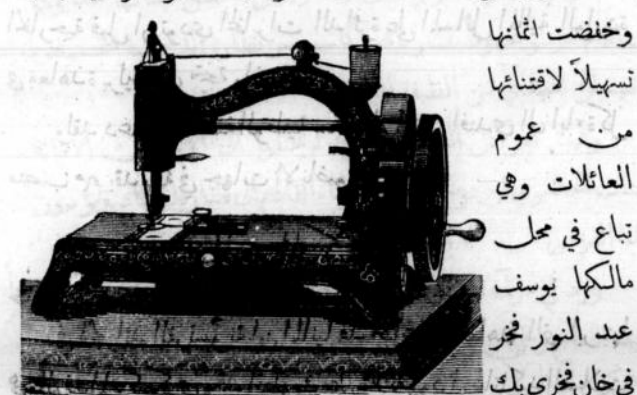 وخفضت اثمانها
تسهيلاً لاقتنائها
من عموم
العائلات وهي
تباع في محل
مالكها يوسف
عبد النور فخر
في خان فخري بك